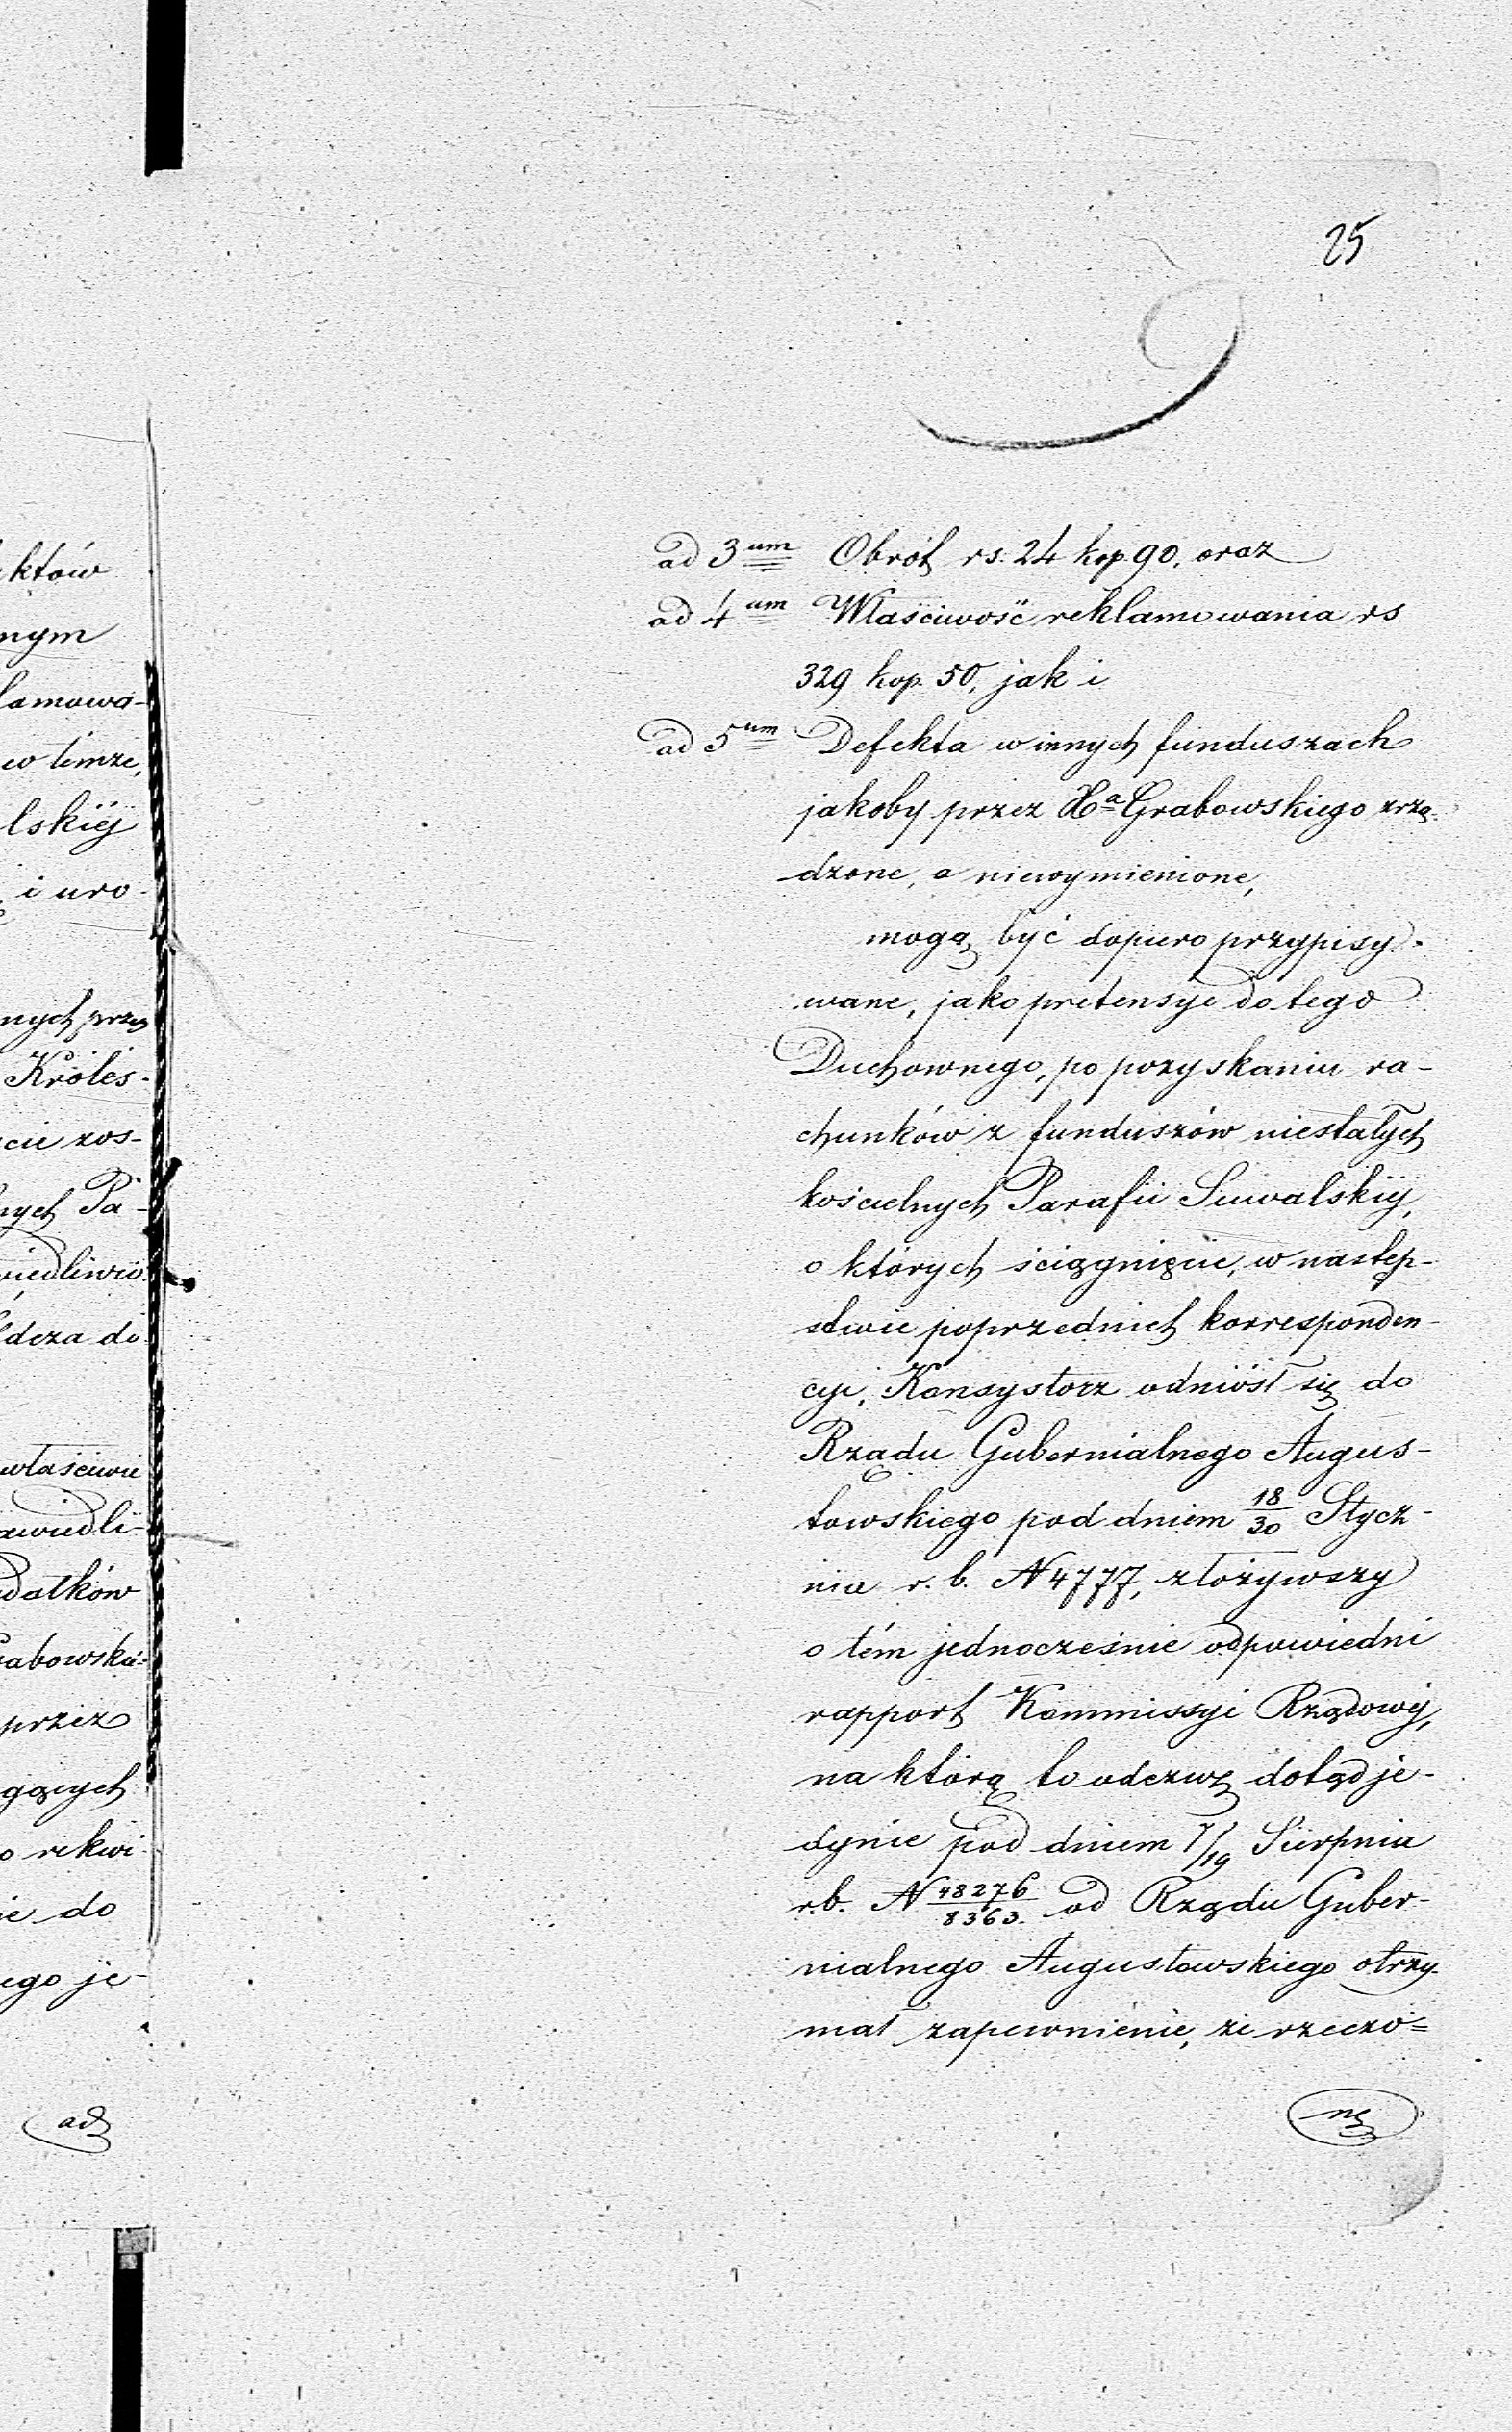 25
ad 3um Obrót rs. 24 kop. 90, oraz
ad 4um Właściwość reklamowania rs
329 kop. 50, jak i
ad 5um Defekta w innych funduszach
jakoby przez Xa Grabowskiego zrzą-
dzone, a niewymienione,
mogą być dopiero przypisy-
wane, jako pretensye do tego
Duchownego, po pozyskaniu ra-
chunków z funduszów niestałych
kościelnych Parafii Suwalskiéj,
o których ściągnięcie, w następ-
stwie poprzednich korresponden-
cyi, Konsystorz odniósł się do
Rządu Gubernialnego Augus-
towskiego pod dniem 18/30 Stycz-
nia r. b. N 4777, złożywszy
o tém jednocześnie odpowiedni
rapport Kommissyi Rządowéj,
na którą to odezwę dotąd je-
dynie pod dniem 7/19 Sierpnia
r.b. N 48276/8363. od Rządu Guber-
nialnego Augustowskiego otrzy-
mał zapewnienie, że rzeczo=
ne
któw
nym
lamowa-
w témże,
lskiéj
i uro-
nych przez
Króles-
cie zos-
nych Pa-
wiedliwio
dcza do
właściwie
awiedli-
datków
rabowskie-
przez
gących
o rekwi-
ie do
ego je-
ad